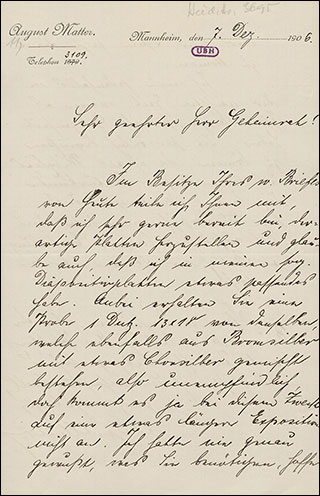 Heid. Hs. 3695
August Matter.
Telephon 1890. 3109.
Mannheim, den 7. Dez. 1906.
UBH
Sehr geehrter Herr Geheimrat!
Im Besitze Ihres w. Briefes
von Heute teile ich Ihnen mit,
daß ich sehr gerne bereit bin, der-
artige Platten herzustellen und glau-
be auch, daß ich in meinen sog.
Diapositivplatten etwas passendes
habe. Anbei erhalten Sie eine
Probe 1 Dtz. 13:18 von denselben,
welche ebenfalls aus Bromsilber
mit etwas Chlorsilber gemischt
bestehen, also unempfindlich
doch kommt es ja bei diesem Zwecke
auf eine etwas längere Exposition
nicht an. Ich hatte nie genau
gewußt, was Sie benötigen, hoffe